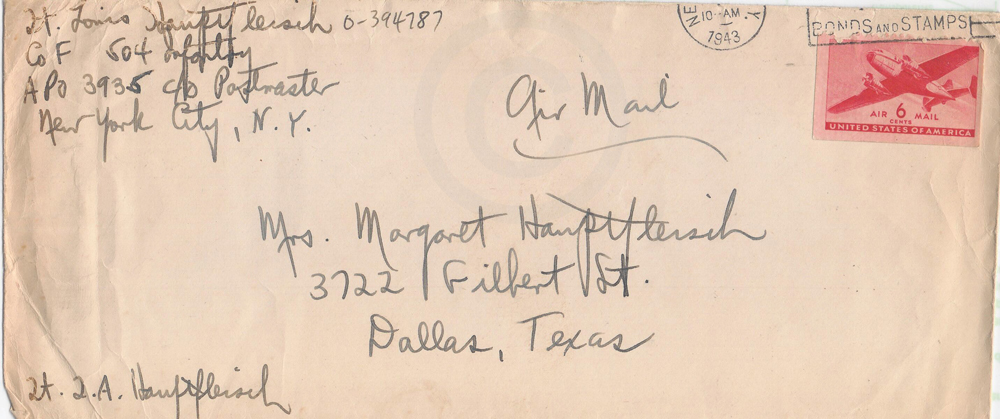 Lt. Louis Hauptfleisch O-394787
Co F 504 Infantry
APO 3935 c/o Postmaster
New York City, N.Y.
NE
10-AM
1943
BONDS AND STAMPS
AIR 6 MAIL
CENTS
UNITED STATES OF AMERICA
Air Mail
Mrs. Margaret Hauptfleisch
3722 Gilbert St.
Dallas, Texas
Lt. L.A. Hauptfleisch